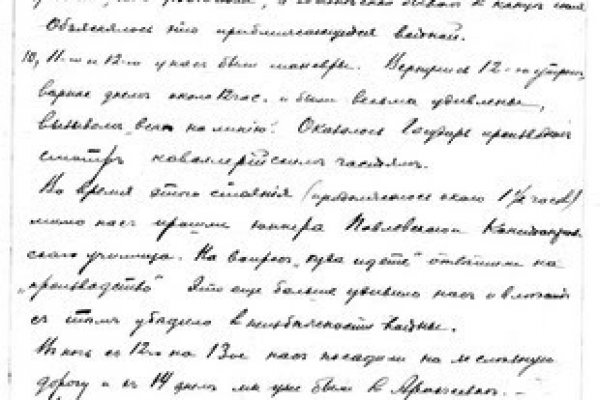 Объяснялось это приближающейся войной.
10, 11-го и 12-го у нас были маневры. Вернулись 12-го утром,
вернее днем около 12 час. и были весьма удивлены,
вызовом "всех на линию". Оказалось Государь производил
смотр кавалерийским частям.
Во время этого стояния (продолжалось около 1½ часов)
мимо нас прошли юнкера Павловского
ского училища. На вопрос "куда идете" ответили на
"производство" Это еще больше удивило нас и вместе
с тем убедило в неизбежности войны.
В ночь с 12-го на 13-ое нас посадили на железную
дорогу и 14 днем мы уже были в